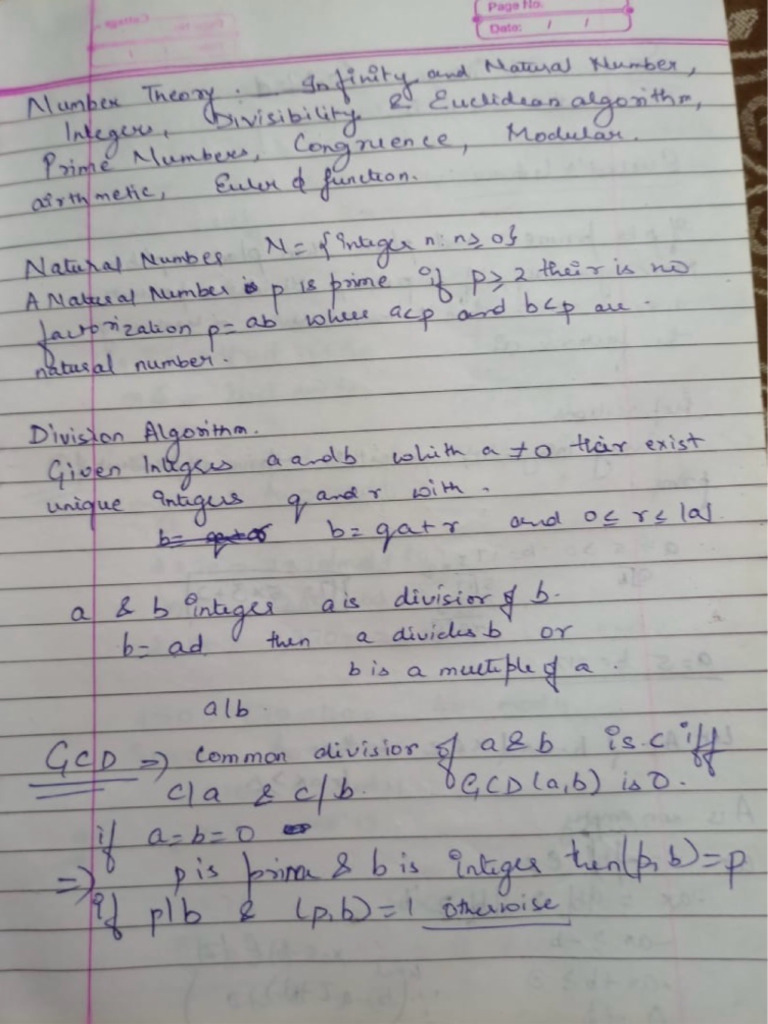 Page No.
Date: / /
Number Theory: Infinity and Natural Number,
Integers, Divisibility & Euclidean algorithm,
Prime Numbers, Congruence, Modular.
airthmetic, Euler ϕ function.
Natural Number N = {integer n: n≥0}
A Natural Number p is prime if p≥2 their is no
factorization p = ab where a<p and b<p are.
natural number.
Division Algorithm.
Given Integers a and b whith a ≠ 0 thair exist
unique integers q and r with.
b= b= qa+r and 0≤ r≤ |a|
a & b integers a is divisior of b.
b= ad then a divides b or
b is a multiple of a.
a|b.
GCD ⇒ common divisior of a & b is c iff
c|a & c|b. GCD(a,b) is 0.
if a=b=0
⇒ p is prime & b is integer then (p, b) = p
if p|b & (p,b)=1 otherwise